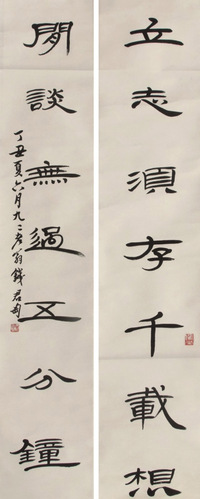 立志須存千載想
閒談無過五分鐘
丁丑夏六月九二老翁錢君匋